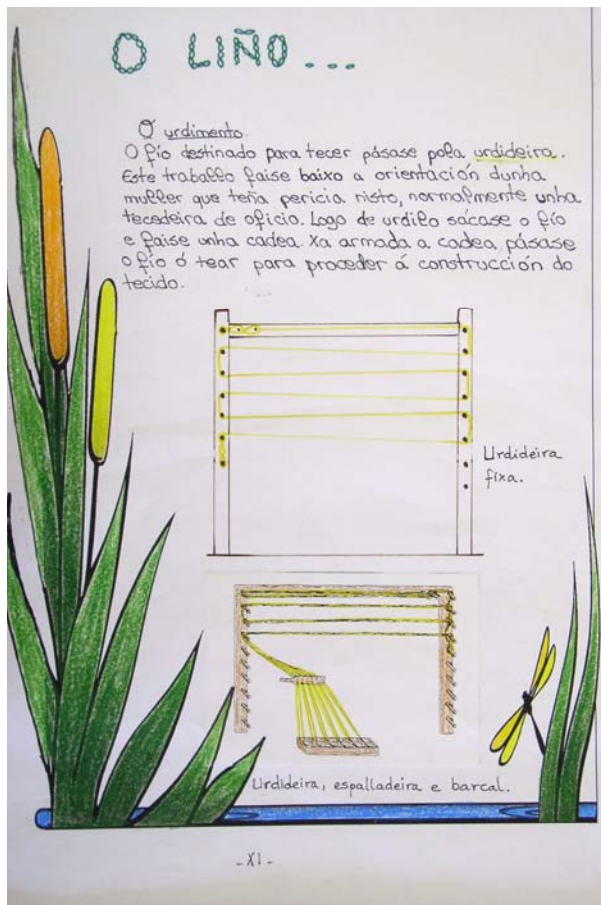 O LIÑO...
O urdimento.
O fío destinado para tecer pásase pola urdideira.
Este traballo faise baixo a orientación dunha
muller que teña pericia nisto, normalmente unha
tecedeira de oficio. Logo de urdilo sácase o fío
e faise unha cadea. Xa armada a cadea, pásase
o fío ó tear para proceder á construcción do
tecido.
Urdideira
fixa.
Urdideira, espalladeira e barcal.
-XI-